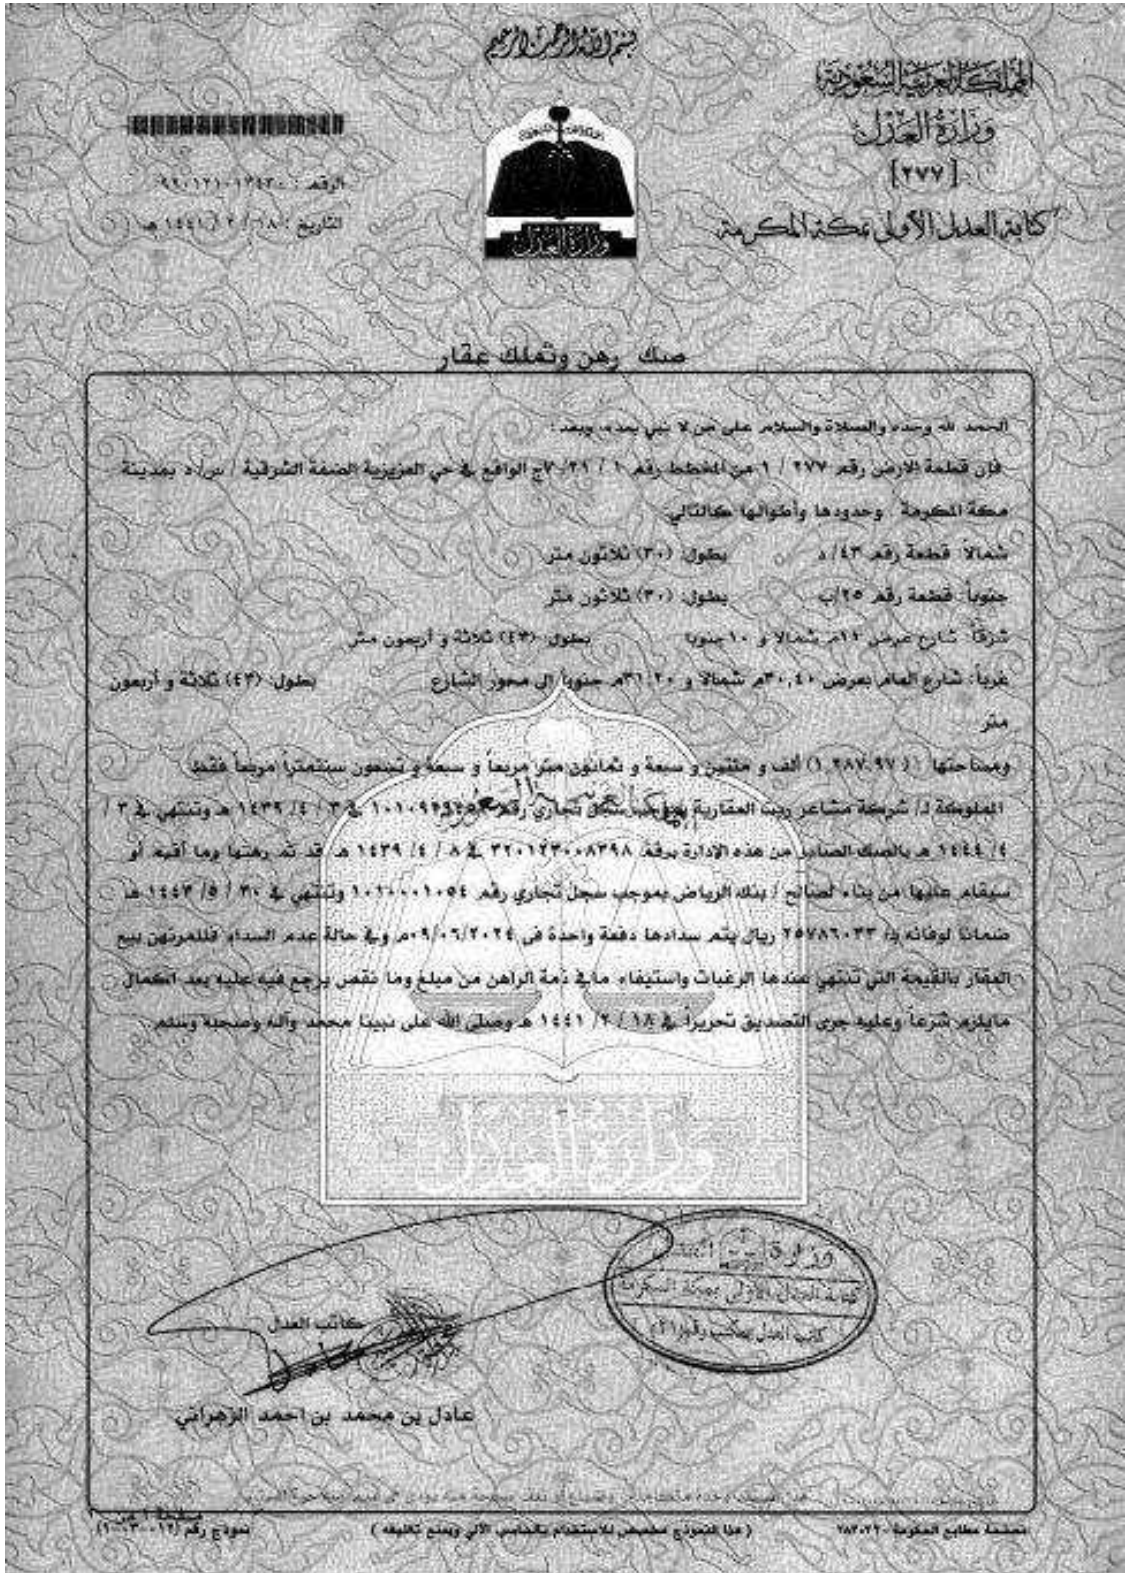 بسم الله الرحمن الرحيم
المملكة العربية السعودية
وزارة العدل
[٢٧٧]
كتابة العدل الأولى بمكة المكرمة
الرقم :
التاريخ : ١٨ / ٢ / ١٤٤١ هـ
وزارة العدل
صك رهن وتملك عقار
الحمد لله وحده والصلاة والسلام على من لا نبي بعده، وبعد :
فإن قطعة الارض رقم ٢٧٧ / ١ من المخطط رقم ١ / ٢١ / ٧ج الواقع في حي العزيزية الضفة الشرقية / س/ د بمدينة
مكة المكرمة . وحدودها وأطوالها كالتالي:
شمالاً: قطعة رقم ٤٣/ د بطول: (٣٠) ثلاثون متر
جنوباً: قطعة رقم ٢٥/ب بطول: (٣٠) ثلاثون متر
شرقاً: شارع عرض ١١م شمالا و ١٠جنوبا بطول: (٤٣) ثلاثة و أربعون متر
غرباً: شارع العام بعرض ٣٠,٤٠م شمالا و ٣١,٢٠م جنوباً إلى محور الشارع بطول: (٤٣) ثلاثة و أربعون
متر
ومساحتها : (١,٢٨٧.٩٧) ألف و مئتين و سبعة و ثمانون متر مربعاً و سبعة و تسعون سنتمتراً مربعاً فقط
المملوكة لـ/ شركة مشاعر ريت العقارية بموجب سجل تجاري رقم في ٣ / ٤ / ١٤٣٩ هـ وتنتهي في ٣ /
٤ / ١٤٤٤ هـ بالصك الصادر من هذه الإدارة برقم ٣٢٠١٢٣٠٠٨٣٩٨ في ٨ / ٤ / ١٤٣٩ هـ قد تم رهنها وما أقيم أو
سيقام عليها من بناء لصالح / بنك الرياض بموجب سجل تجاري رقم ١٠١٠٠٠١٠٥٤ وتنتهي في ٣٠ / ٥ / ١٤٤٣ هـ
ضمانا لوفائه بـ ٢٥٧٨٦٠٣٣ ريال يتم سدادها دفعة واحدة في ٠٩/٠٦/٢٠٢٤م وفي حالة عدم السداد فللمرتهن بيع
العقار بالقيمة التي تنتهي عندها الرغبات واستيفاء مافي ذمة الراهن من مبلغ وما نقص يرجع فيه عليه بعد اكمال
مايلزم شرعاً وعليه جرى التصديق تحريراً في ١٨ / ٢ / ١٤٤١ هـ وصلى الله على نبينا محمد وآله وصحبه وسلم.
وزارة العدل
وزارة العدل
كتابة العدل الأولى بمكة المكرمة
كاتب العدل بمكتب رقم
كاتب العدل
عادل بن محمد بن احمد الزهراني
صفحة ١ من ١
مطابع الحكومة
( هذا النموذج مخصص للاستخدام بالحاسب الآلي ويمنع تغليفه )
نموذج رقم